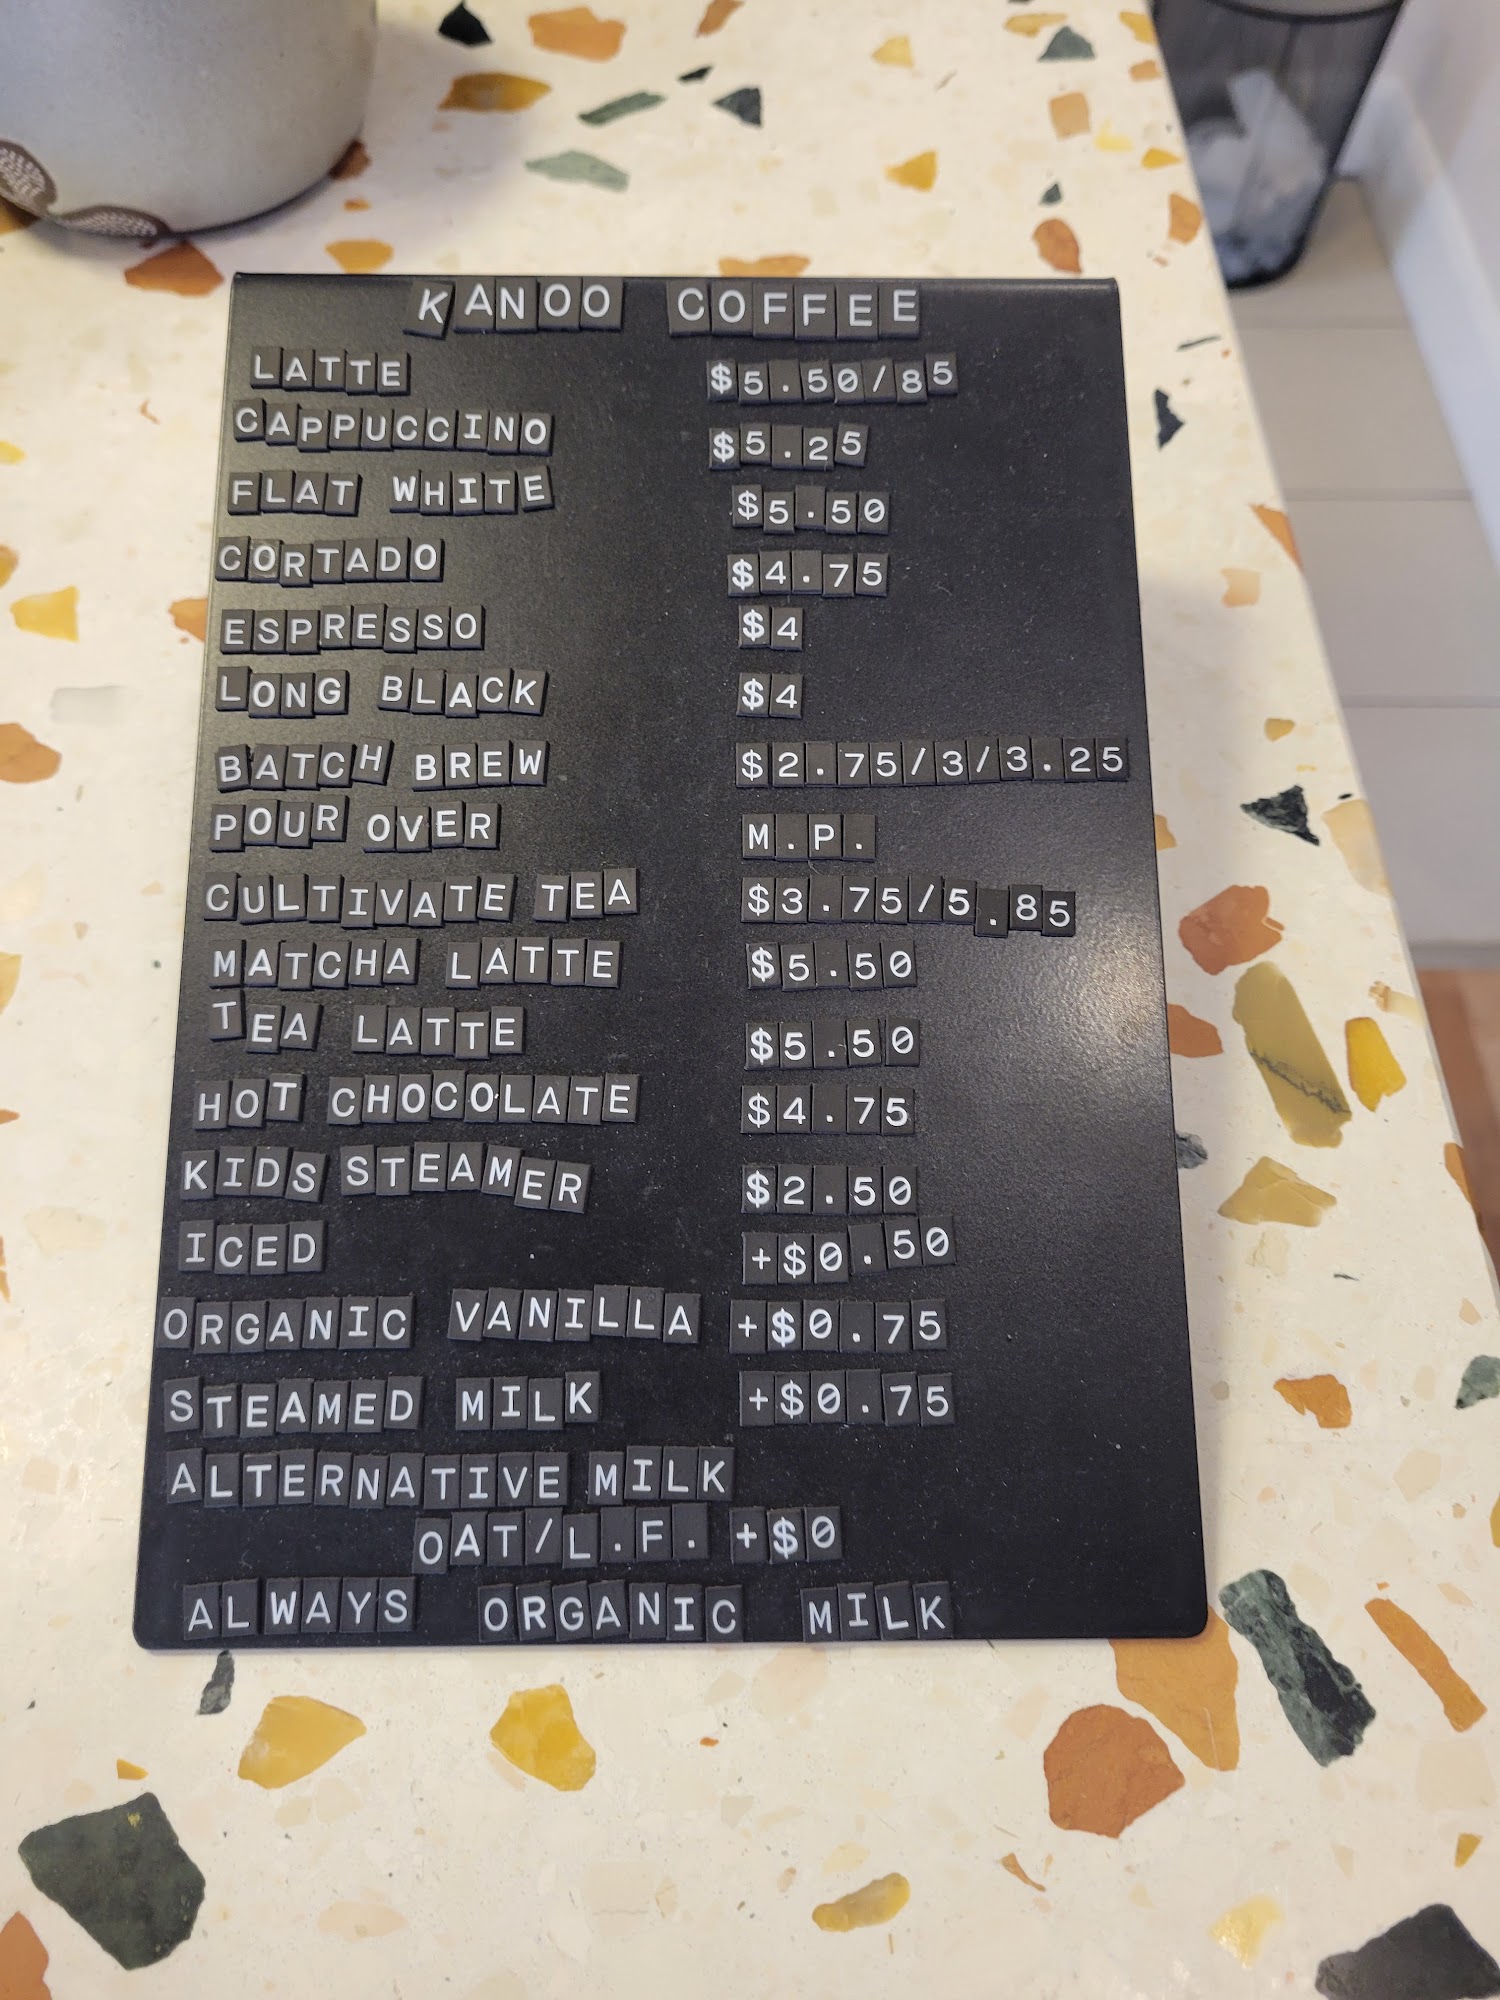 KANOO COFFEE
LATTE $5.50/85
CAPPUCCINO $5.25
FLAT WHITE $5.50
CORTADO $4.75
ESPRESSO $4
LONG BLACK $4
BATCH BREW $2.75/3/3.25
POUR OVER M.P.
CULTIVATE TEA $3.75/5.85
MATCHA LATTE $5.50
TEA LATTE $5.50
HOT CHOCOLATE $4.75
KIDS STEAMER $2.50
ICED +$0.50
ORGANIC VANILLA +$0.75
STEAMED MILK +$0.75
ALTERNATIVE MILK
OAT/L.F. +$0
ALWAYS ORGANIC MILK